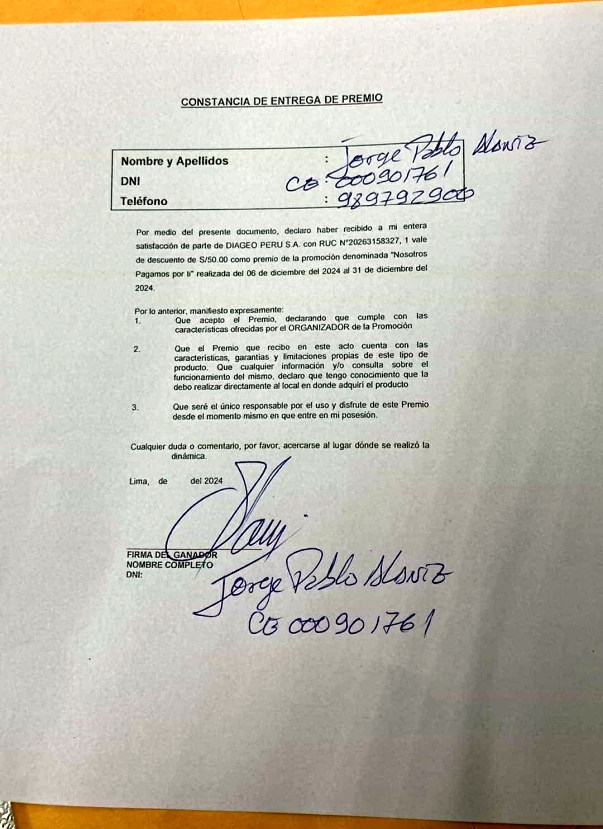 CONSTANCIA DE ENTREGA DE PREMIO
Nombre y Apellidos : Jorge Pablo Alaniz
DNI CE : 000901761
Teléfono : 989792900
Por medio del presente documento, declaro haber recibido a mi entera
satisfacción de parte de DIAGEO PERU S.A. con RUC N°20263158327, 1 vale
de descuento de S/50.00 como premio de la promoción denominada "Nosotros
Pagamos por ti" realizada del 06 de diciembre del 2024 al 31 de diciembre del
2024.
Por lo anterior, manifiesto expresamente:
1. Que acepto el Premio, declarando que cumple con las
características ofrecidas por el ORGANIZADOR de la Promoción
2. Que el Premio que recibo en este acto cuenta con las
características, garantías y limitaciones propias de este tipo de
producto. Que cualquier información y/o consulta sobre el
funcionamiento del mismo, declaro que tengo conocimiento que la
debo realizar directamente al local en donde adquirí el producto
3. Que seré el único responsable por el uso y disfrute de este Premio
desde el momento mismo en que entre en mi posesión.
Cualquier duda o comentario, por favor, acercarse al lugar dónde se realizó la
dinámica.
Lima, de del 2024
FIRMA DEL GANADOR
NOMBRE COMPLETO
DNI:
Jorge Pablo Alaniz
CE 000901761